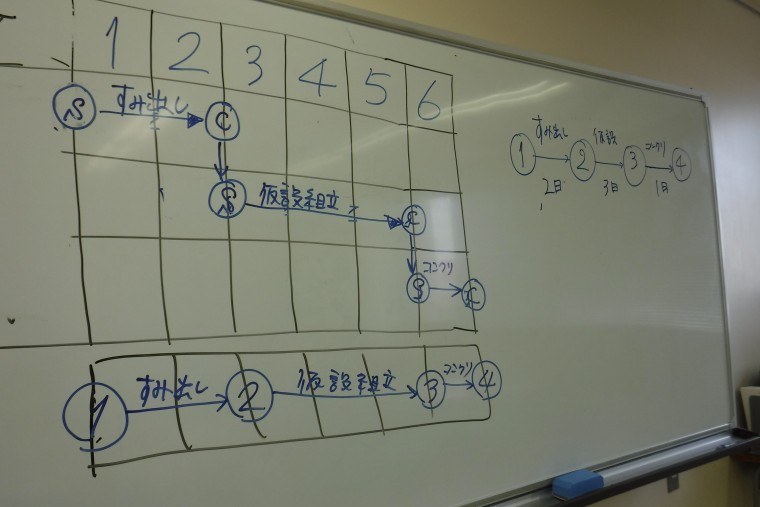 1 2 3 4 5 6
S すみ出し C
S 仮設組立 C
S コンクリ C
1 すみ出し 2 仮設組立 3 コンクリ 4
すみ出し 仮設 コンクリ
1 2 3 4
2日 3日 1日